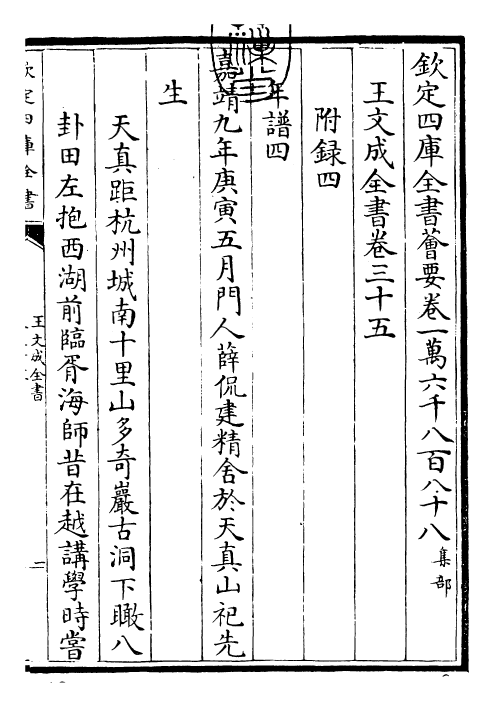 欽定四庫全書薈要卷一萬六千八百八十八 集部
王文成全書卷三十五
附録四
年譜四
嘉靖九年庚寅五月門人薛侃建精舍於天真山祀先
生
天真距杭州城南十里山多奇巖古洞下瞰八
卦田左抱西湖前臨胥海師昔在越講學時嘗
欽定四庫全書
王文成全書